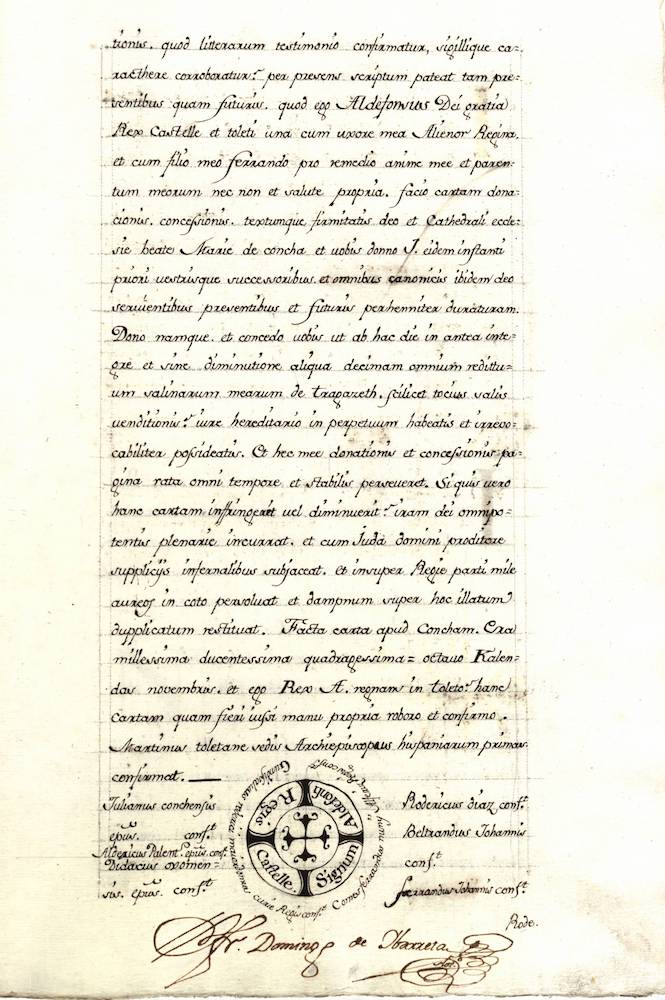 tionis. quod litterarum testimonio confirmatur, sigillique ca-
racthere corroboratur: per presens scriptum pateat tam pre-
sentibus quam futuris. quod ego Aldefonsus Dei gratia
Rex Castelle et toleti una cum uxore mea Alienor Regina,
et cum filio meo ferrando pro remedio anime mee et paren-
tum meorum nec non et salute propria. facio cartam dona-
cionis. concessionis. textumque firmitatis deo et Cathedrali eccle-
sie beate Marie de concha et vobis donno J. eidem instanti
priori vestrisque successoribus. et omnibus canonicis ibidem deo
servientibus presentibus et futuris perhenniter duraturam.
Dono namque. et concedo vobis ut ab hac die in antea inte-
gre et sine diminutione aliqua decimam omnium redittu-
um salinarum mearum de tragazeth. scilicet tocius salis
venditionis: iure hereditario in perpetuum habeatis et irrevo-
cabiliter possideatis. Et hec mee donationis et concessionis pa-
gina rata omni tempore et stabilis perseveret. Si quis vero
hanc cartam inffringeret vel diminuerit: iram dei omnipo-
tentis plenarie incurrat. et cum Juda domini proditore
supplicijs infernalibus subjaceat. et insuper Regie parti mile
aureos in coto persoluat et dampnum super hoc illatum
dupplicatum restituat. Facta carta apud Concham. Era
millessima ducentessima quadragessima = octavo Kalen-
das novembris. et ego Rex A. regnans in toleto: hanc
Cartam quam fieri iussi manu propria roboro et confirmo.
Martinus toletane sedis Archiepiscopus hispaniarum primas
confirmat.
Julianus conchensis
epus. conf.t
Aldericus Palent. epus. conf.
Didacus oxomen-
sis. epus. conf.t
Signum Aldefonsi Regis Castelle
curie Regis conf.t
Rodericus diaz conf.t
Beltrandus Johannis
conf.t
ferrandus Johannis conf.t
Rode.
Fr. Domingo de Ibarreta